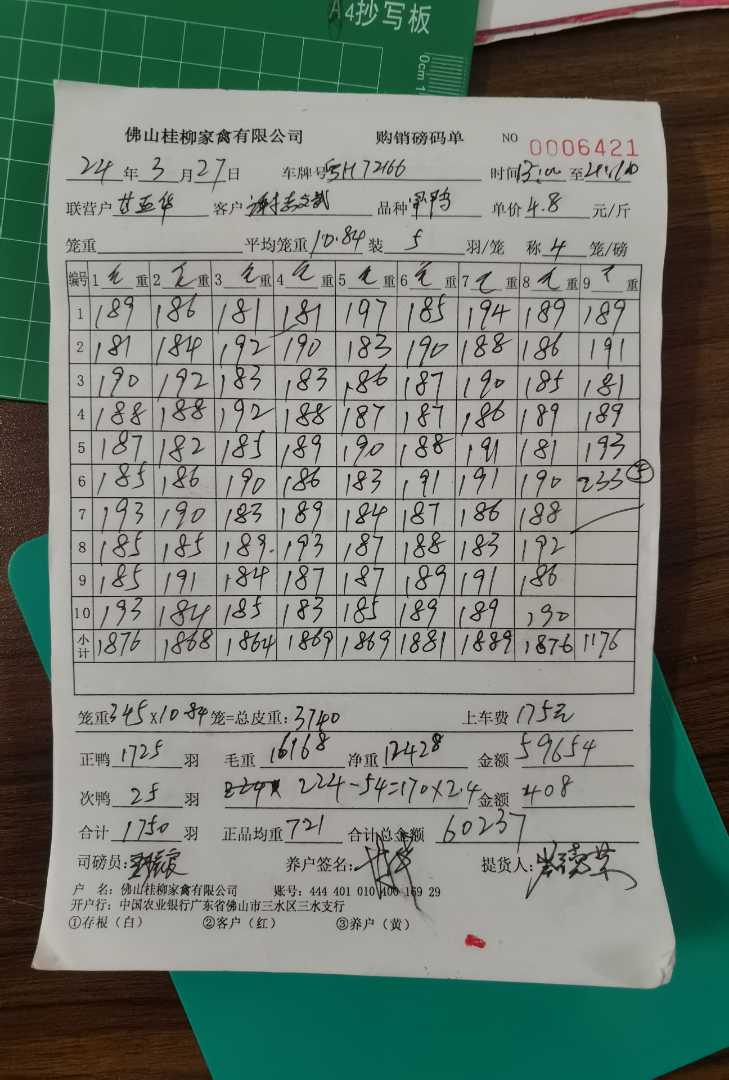 A4抄写板
0cm 1
佛山桂柳家禽有限公司 购销磅码单 NO 0006421
24年3月27日 车牌号粤H72166 时间13:00至
联营户甘亚华 客户谢志文武 品种 单价4.8元/斤
笼重 平均笼重10.84装5羽/笼 称4笼/磅
编号 1毛重 2毛重 3毛重 4毛重 5毛重 6毛重 7毛重 8毛重 9重
1 189 186 181 181 197 185 194 189 189
2 181 184 192 190 183 190 188 186 191
3 190 192 183 183 186 187 190 185 181
4 188 188 192 188 187 187 186 189 189
5 187 182 185 189 190 188 191 181 193
6 185 186 190 186 183 191 191 190 233 ⑤
7 193 190 183 189 184 187 186 188
8 185 185 189 193 187 188 183 192
9 185 191 184 187 187 189 191 186
10 193 184 185 183 185 189 189 190
小计 1876 1868 1864 1869 1869 1881 1889 1876 1176
笼重345×10.84笼=总皮重:3740 上车费175元
正鸭1725羽 毛重16168 净重12428 金额59654
次鸭25羽 224-54=170×2.4 金额408
合计1750羽 正品均重721 合计总金额60237
司磅员: 养户签名: 提货人:
户 名:佛山桂柳家禽有限公司 账号:444 401 010 400 169 29
开户行:中国农业银行广东省佛山市三水区三水支行
①存根(白) ②客户(红) ③养户(黄)